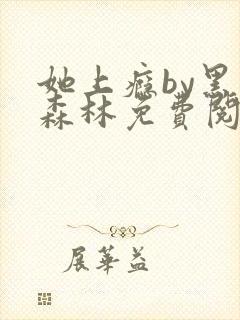 她上瘾by黑
森林免費閱
展華益